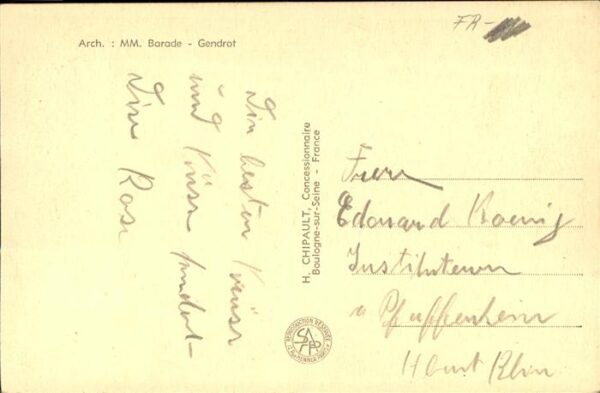 Arch. : MM. Barade - Gendrot
FR-
Die besten Grüsse
und Küsse sendet -
Dir Rose
H. CHIPAULT, Concessionnaire
Boulogne-sur-Seine - France
Herrn
Edouard Koenig
Instituteur
à Pfaffenheim
Haut Rhin
REPRODUCTION RÉSERVÉE